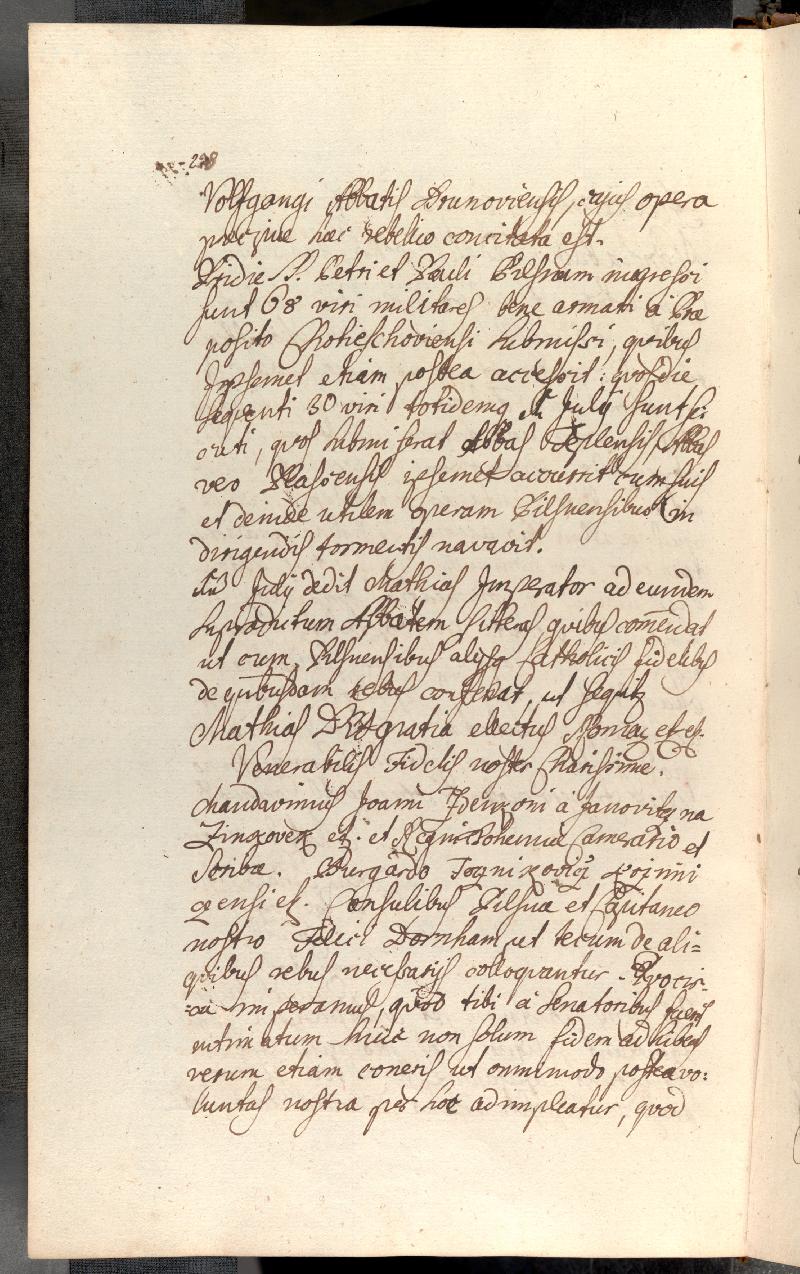 228
Volfgangi Abbatis Brunoviensis, cujus opera
præcipue hæc rebellio concitata est.
Pridie S. Petri et Pauli Pilsnam ingressi
sunt 68 viri militares bene armati à Præ
posito Chotieschoviensi submissi, quibus
Ipsemet etiam postea accessit: quos die
sequenti 30 viri totidemq July sunt se:
cuti, quos submiserat Abbas Teplensis, Abbas
vero Plassensis ipsemet accurrit cum suis
et deinde utilem operam Pilsnensibus in
dirigendis tormentis navavit.
July dedit Mathias Imperator ad eundem
supradictum Abbatem litteras quibus comendat
ut cum Pilsnensibus alysq Catholicis fidelibus
de quibusdam rebus conferat, ut sequit
Mathias D gratia electus Roman et c.
Venerabilis Fidelis noster Charissime.
Mandavimus Joanni Zdenconi à Janovitz na
et Regni Bohemiæ Camerario et
Scribæ. Burgardo
Consulibus Pilsnæ et Capitaneo
nostro Felici Dornham, ut tecum de ali=
quibus rebus necessarys colloquantur.
imperamus, quod tibi à Senatoribus fuerit
intimatum huic non solum fidem adhibeas
verum etiam coneris ut omnimodo postea vo:
luntas nostra per hoc adimpleatur, quod